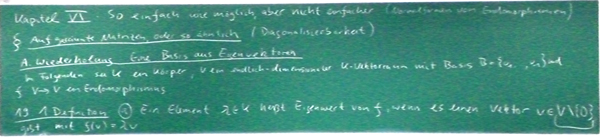 Kapitel VI: So einfach wie möglich, aber nicht einfacher (Normalformen von Endomorphismen)
§ Auf geeignete Matrizen, oder so ähnlich (Diagonalisierbarkeit)
A. Wiederholung Eine Basis aus Eigenvektoren
Im Folgenden sei K ein Körper, V ein endlich-dimensionaler K-Vektorraum mit Basis B= und
f: V→V ein Endomorphismus
19.1 Definition Ein Element λ∈K heißt Eigenwert von f, wenn es einen Vektor v∈V\{0}
gibt mit f(v)=λv